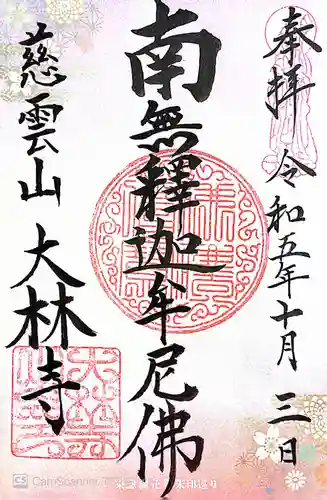 奉拝 令和五年十月三日
南無釋迦牟尼佛
慈雲山 大林寺
CS CamScanner